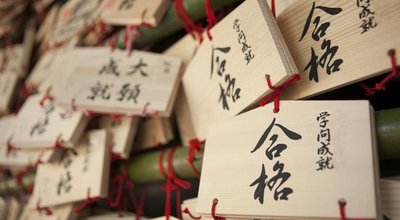 成就
合格
学問成就
合格
大願
成就
学問成就
合格
合格
合格